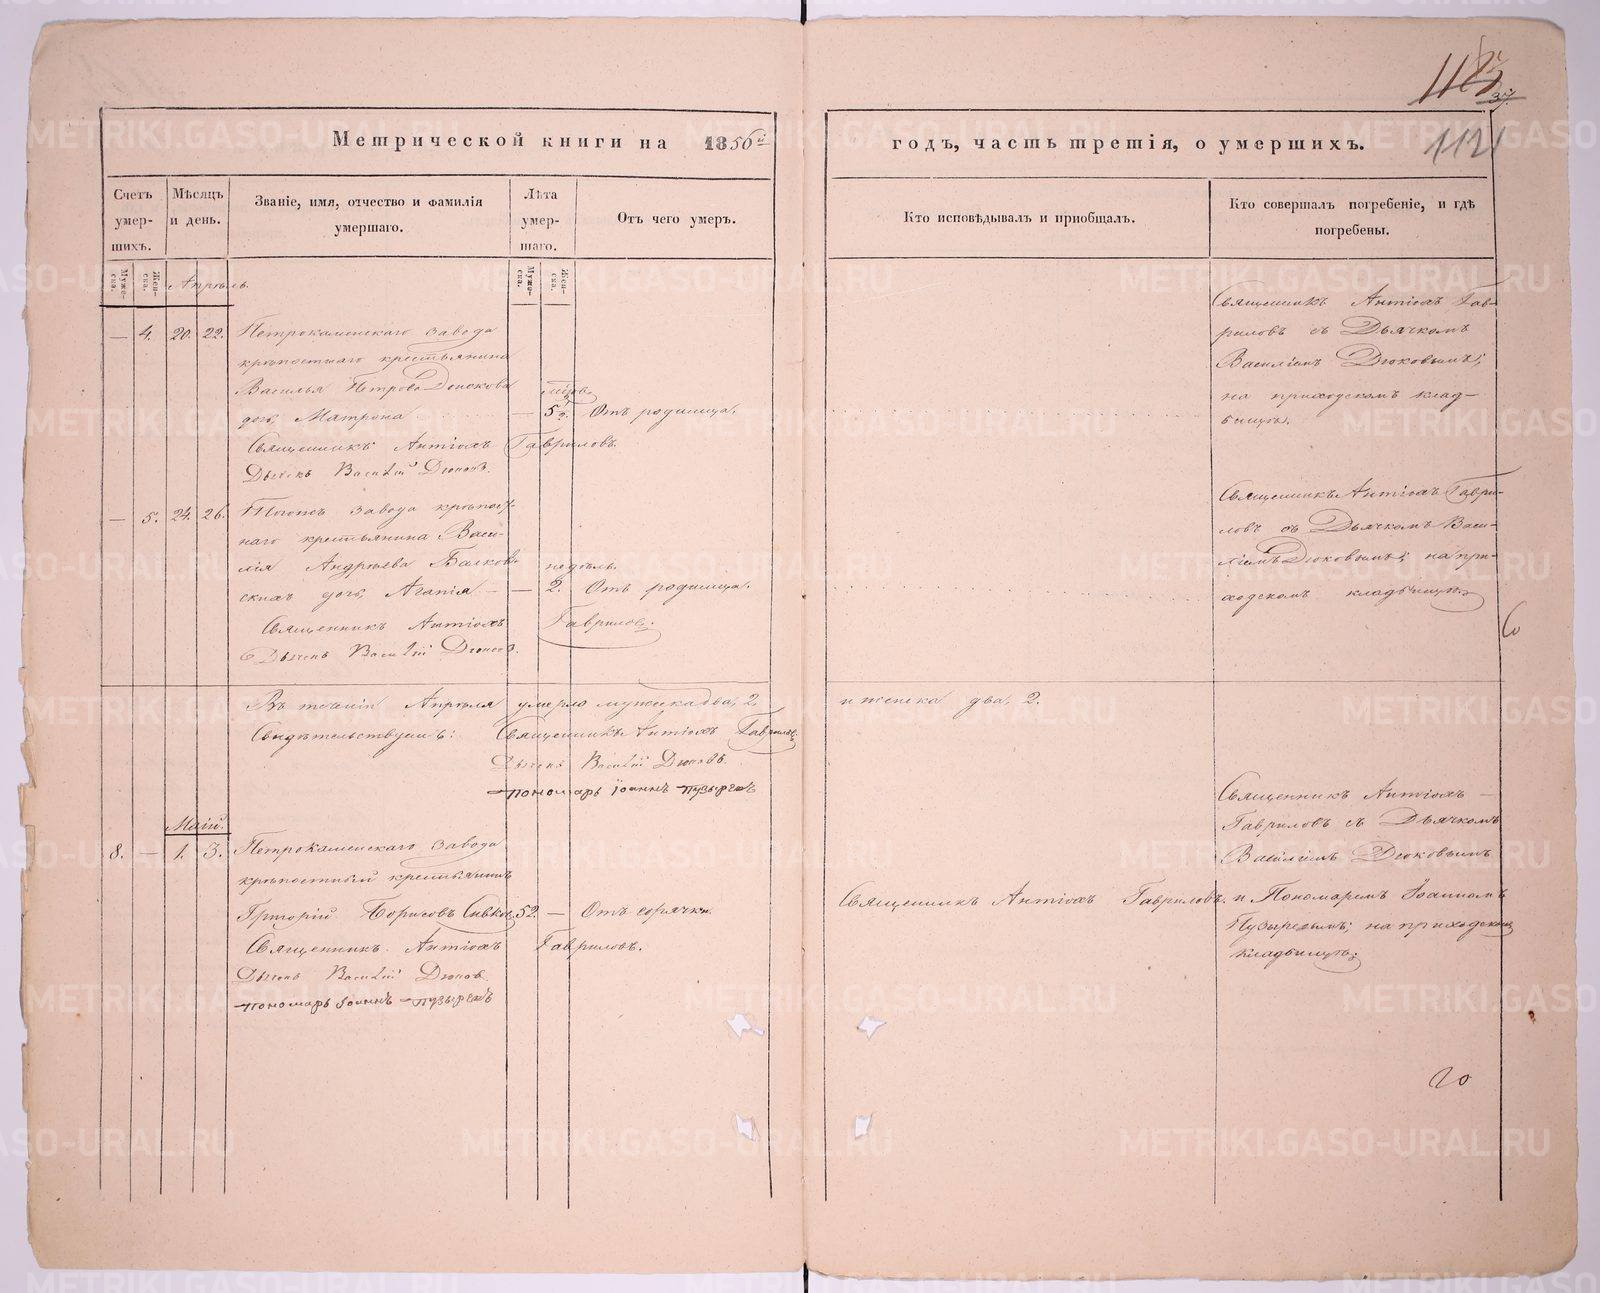 Метрической книги на 1856й
годъ, часть третія, о умершихъ.
1121
Счетъ умер-шихъ.
Мѣсяцъ и день.
Званіе, имя, отчество и фамилія умершаго.
Лѣта умер-шаго.
Отъ чего умеръ.
Кто исповѣдывалъ и пріобщалъ.
Кто совершалъ погребеніе, и гдѣ погребены.
Муже-ска.
Жен-ска.
Муже-ска.
Жен-ска.
Апрѣль.
— 4. 20. 22. Петрокаменскаго завода
крѣпостнаго крестьянина
Василья Петрова
дочь Матрона — 5 Отъ родимца.
Священникъ Антіохъ Гавриловъ.
Дьячекъ Василій Дюковъ.
Священникъ Антіохъ Гав-
риловъ съ Дьячкомъ
Василіемъ Дюковымъ;
на приходскомъ клад-
бищѣ.
— 5. 24. 26. Тогоже завода крѣпост-
наго крестьянина Васи-
лія Андрѣева недѣль.
дочь Агапія — — 2. Отъ родимца.
Священникъ Антіохъ Гавриловъ.
Дьячекъ Василій Дюковъ.
Священникъ Антіохъ Гаври-
ловъ съ Дьячкомъ Васи-
ліемъ Дюковымъ; на при-
ходскомъ кладбищѣ.
Въ теченіи Апрѣля умерло мужеска два, 2 и женска два, 2.
Свидѣтельствуемъ: Священникъ Антіохъ Гавриловъ.
Дьячекъ Василій Дюковъ.
Пономарь Іоаннъ Пузыревъ
Маій.
8. — 1. 3. Петрокаменскаго завода
крѣпостный крестьянинъ
Григорій Борисовъ 52. — Отъ горячки.
Священникъ Антіохъ Гавриловъ.
Дьячекъ Василій Дюковъ
Пономарь Іоаннъ Пузыревъ
Священникъ Антіохъ Гавриловъ.
Священникъ Антіохъ —
Гавриловъ съ Дьячкомъ
Василіемъ Дюковымъ
и Пономаремъ Іоанномъ
Пузыревымъ; на приходскомъ
кладбищѣ.
METRIKI.GASO-URAL.RU